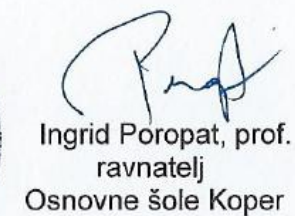 Ingrid Poropat, prof.
ravnatelj
Osnovne šole Koper